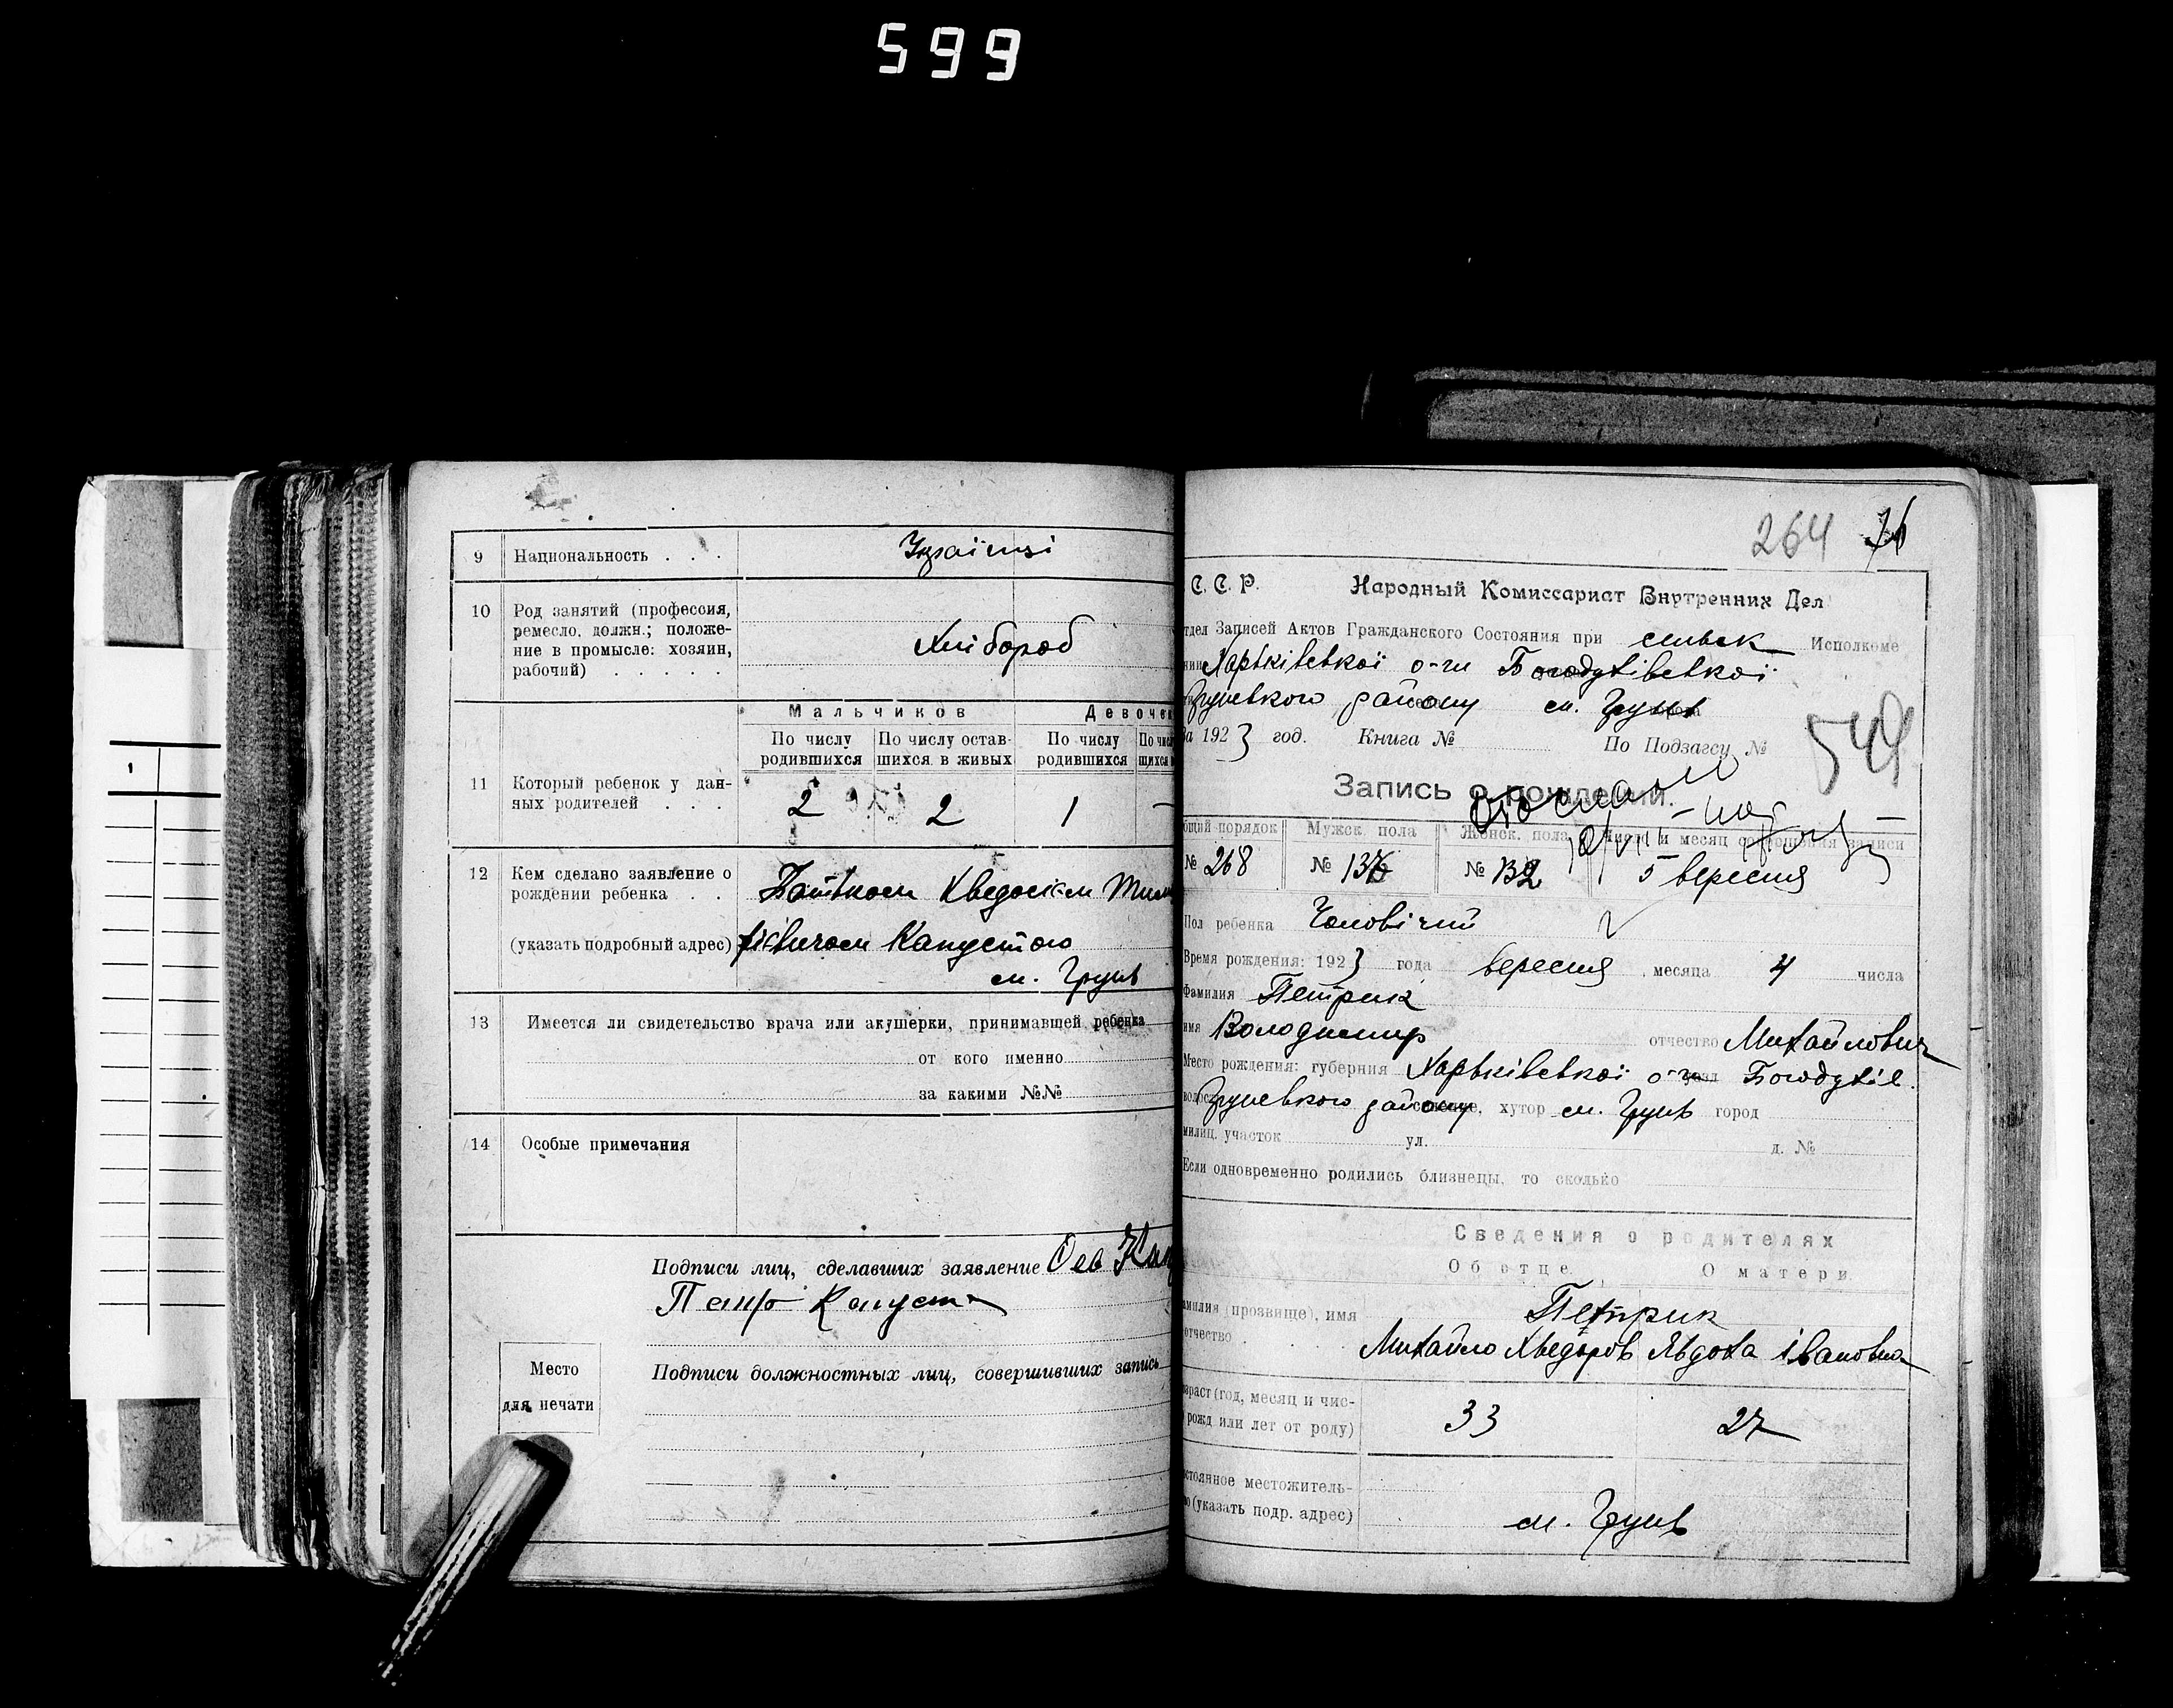 599
9 Национальность . . . Українці
10 Род занятий (профессия,
ремесло, должн.; положе-
ние в промысле: хозяин,
рабочий) . . . . . Хлібороб
Мальчиков Девочек
По числу родившихся По числу остав-шихся в живых По числу родившихся
11 Который ребенок у дан-
ных родителей . . . 2 2 1 —
12 Кем сделано заявление о
рождении ребенка . . Батьком Хведосієм Тим
(указать подробный адрес) Капустою
м. Грунь
13 Имеется ли свидетельство врача или акушерки, принимавшей ребенка
от кого именно
за какими №№
14 Особые примечания
Подписи лиц, сделавших заявление
Петр Капуста
Место
для печати
Подписи должностных лиц, совершивших запись
264
С. С. Р. Народный Комиссариат Внутренних Дел
Записей Актов Гражданского Состояния при сільск Исполкоме
Харьківської о-ги Богодухівської
Грунського району м. Грунь
За 1923 год. Книга № По Подзагсу №
549
Запись о рождении.
общий порядок Мужск. пола Женск. пола Число и месяц совершения записи
№ 268 № 136 № 132 5 вересня
Пол ребенка Чоловічий
Время рождения: 1923 года вересня месяца 4 числа
Фамилия Петрик
имя Володимир отчество Михайлович
Место рождения: губерния Харьківської о-ги Богодухів.
Грунського району селение, хутор м. Грунь город
милиц. участок ул. д. №
Если одновременно родились близнецы, то сколько
Сведения о родителях
Об отце О матери
фамилия (прозвище), имя Петрик
отчество . Михайло Хведоров Явдоха Івановна
возраст (год, месяц и чис-
рожд или лет от роду) 33 27
постоянное местожитель-
во (указать подр. адрес) м. Грунь